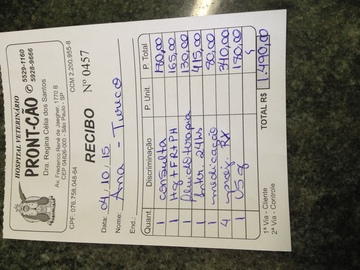 HOSPITAL VETERINÁRIO
PRONT-CÃO
Dra. Regina Célia dos Santos
5529-1160
5928-9666
Av. Frederico Rene de Jaegher, 1770 B
CEP 04826-000 - São Paulo - SP
CPF: 076.758.048-64
CCM 2.200.855-8
RECIBO Nº 0457
Data: 04.10.15
Nome: Ana - Turico
End.:
Quant. Discriminação P. Unit. P. Total
1 consulta 130,00
1 Hg+FR+PH 165,00
1 Fluidoterapia 130,00
1 Inter. 24hs 415,00
1 medicação 80,00
4 RX 340,00
1 USG 180,00
1ª Via - Cliente
2ª Via - Controle
TOTAL R$ 1.490,00